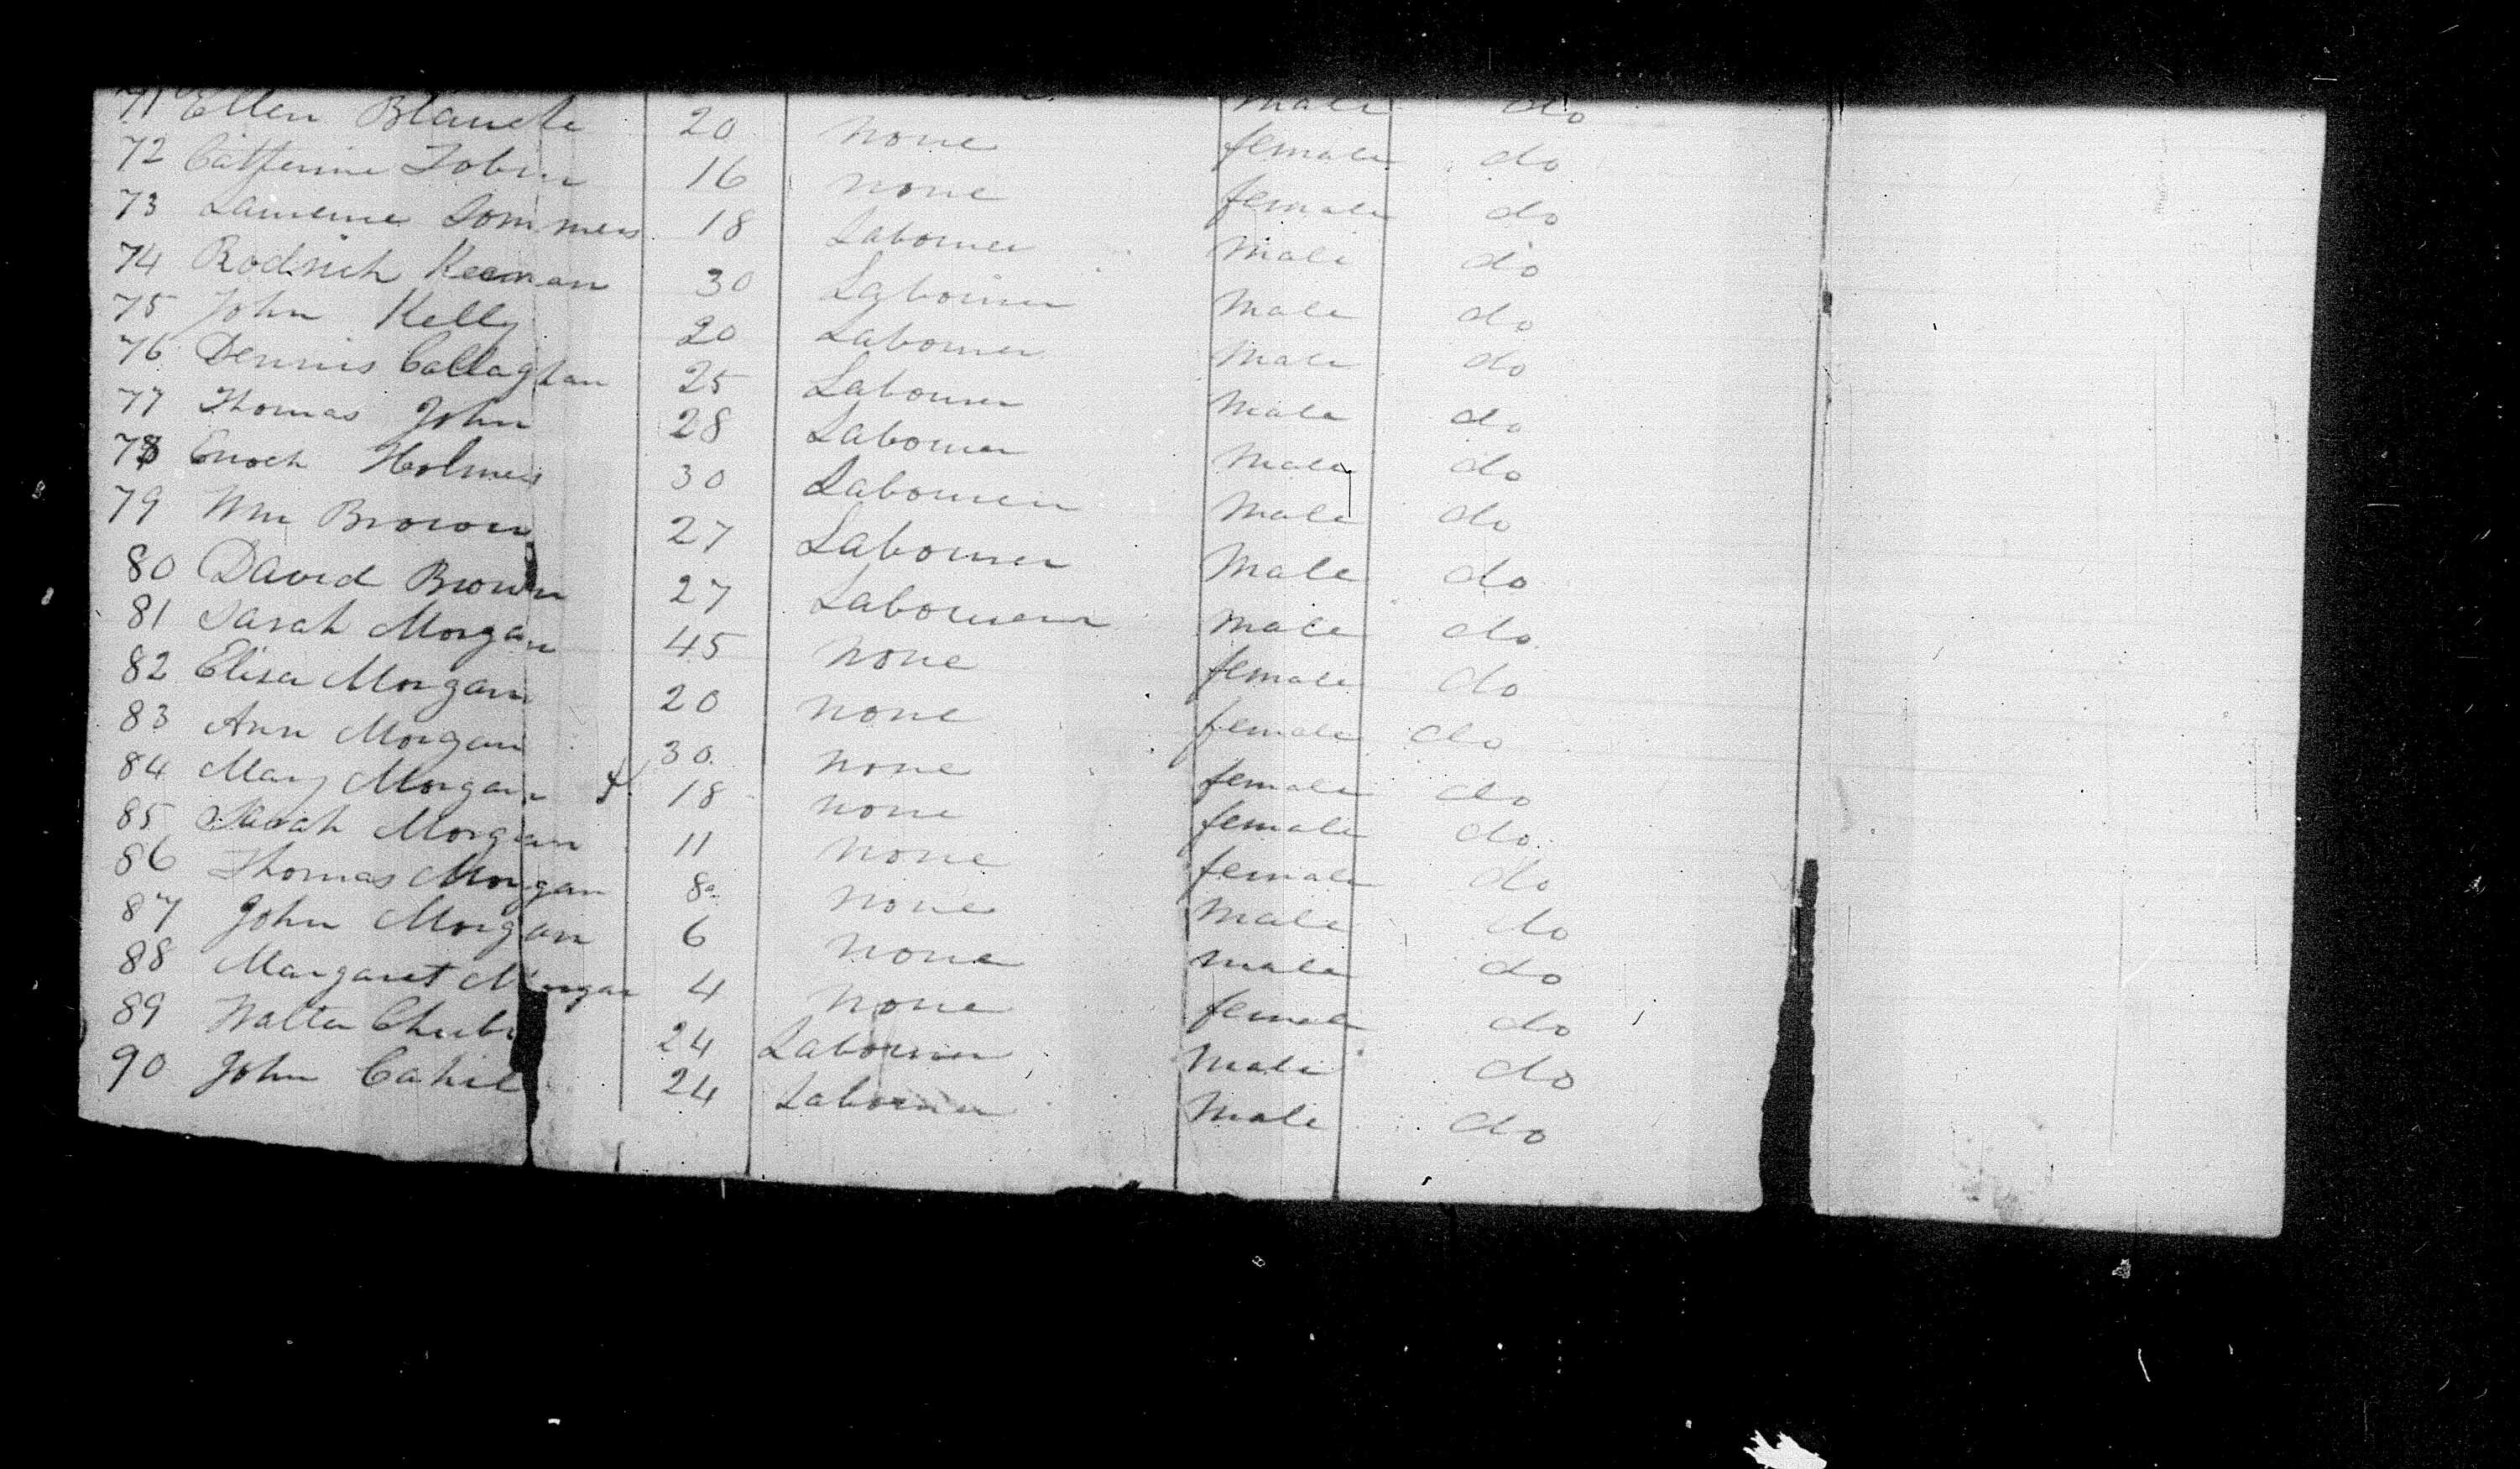 male do
71 Ellen Blanch 20 none female do
72 Catherine Tobin 16 none female do
73 Laurence Sommers 18 Labourer Male do
74 Rodrich Keenan 30 Labourer Male do
75 John Kelly 20 Labourer Male do
76 Dennis Callaghan 25 Labourer Male do
77 Thomas John 28 Labourer Male do
78 Enoch Holmes 30 Labourer Male do
79 Wm Brown 27 Labourer Male do
80 David Brown 27 Labourer male do
81 Sarah Morgan 45 none female do
82 Elisa Morgan 20 none female do
83 Ann Morgan 30 none female do
84 Mary Morgan 18 none female do
85 Sarah Morgan 11 none female do
86 Thomas Morgan 8 none Male do
87 John Morgan 6 none male do
88 Margaret Morgan 4 none female do
89 Walter Chub 24 Labourer Male do
90 John Cahil 24 Labourer Male do